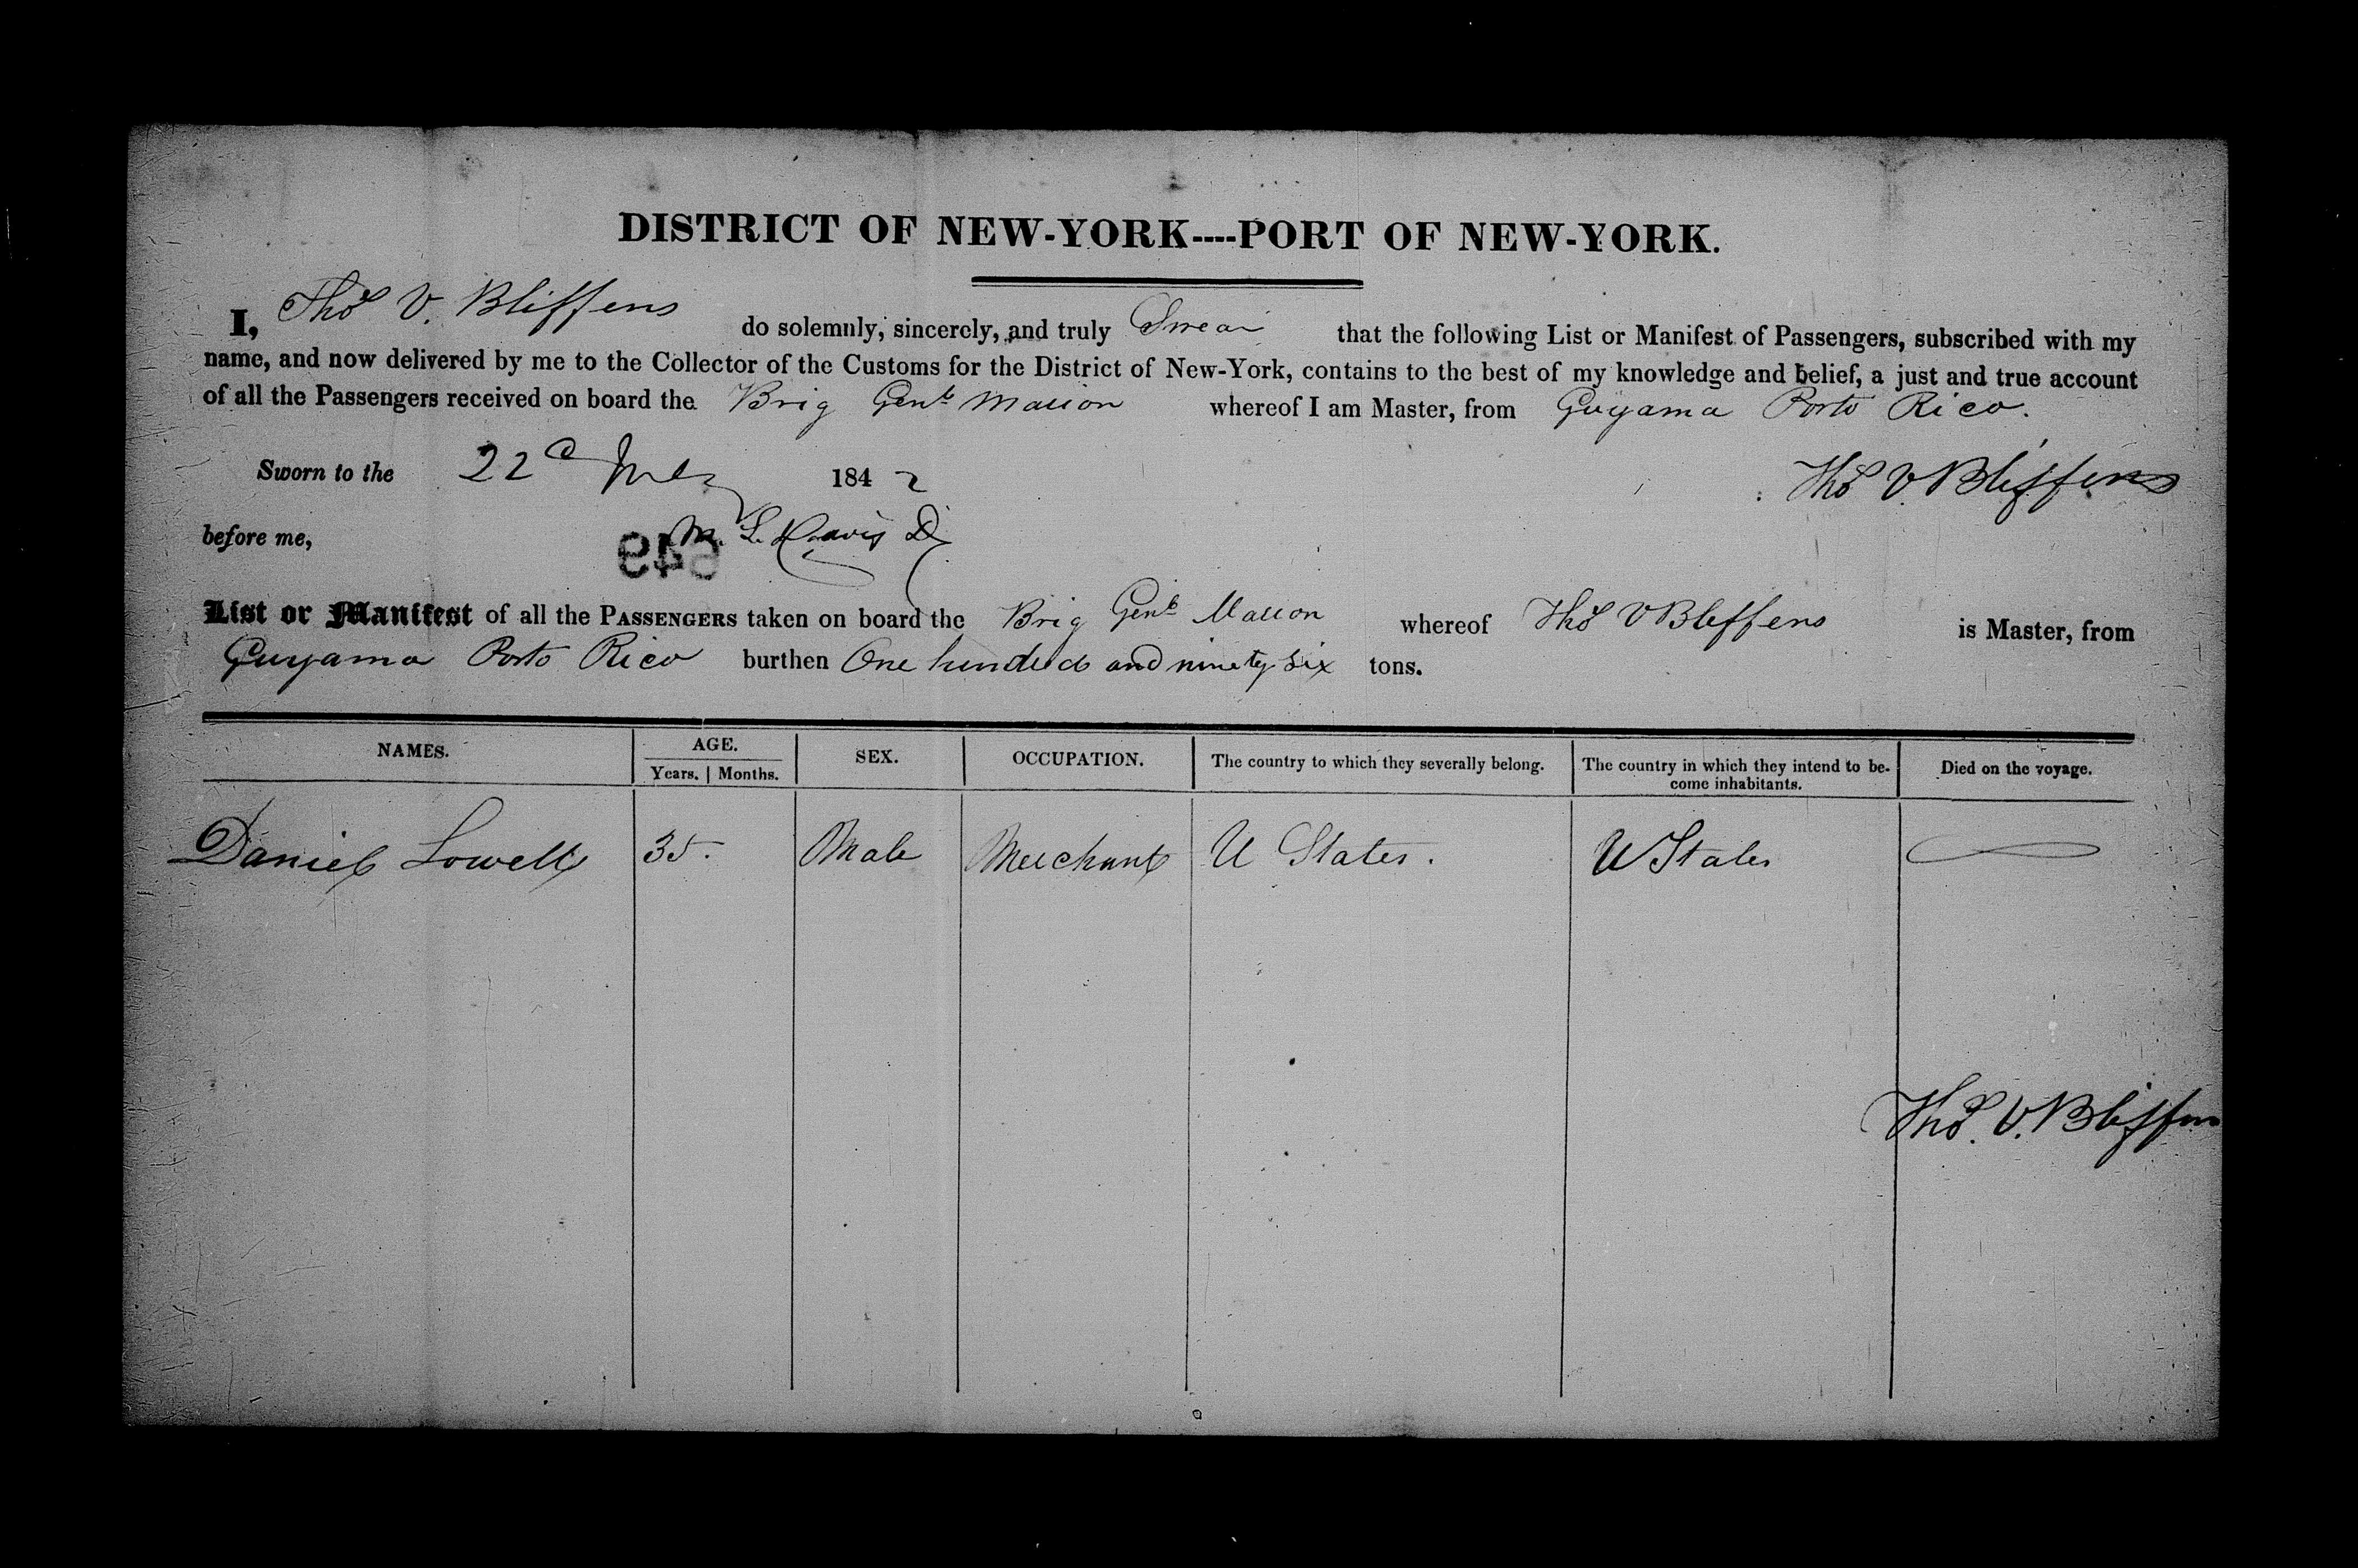 DISTRICT OF NEW-YORK----PORT OF NEW-YORK.
I, Thos V. Bliffens do solemnly, sincerely, and truly Swear that the following List or Manifest of Passengers, subscribed with my
name, and now delivered by me to the Collector of the Customs for the District of New-York, contains to the best of my knowledge and belief, a just and true account
of all the Passengers received on board the Brig Genl Marion whereof I am Master, from Guyama Porto Rico.
Sworn to the 22d 1842
Thos V. Bliffens
before me, M. L. Davis
List or Manifest of all the PASSENGERS taken on board the Brig Genl Marion whereof Thos V Bliffens is Master, from
Guyama Porto Rico burthen One hundred and ninety six tons.
NAMES. AGE. Years. | Months. SEX. OCCUPATION. The country to which they severally belong. The country in which they intend to be-come inhabitants. Died on the voyage.
Daniel Lowell 35. Male Merchant U States. U States
Thos. V. Bliffens